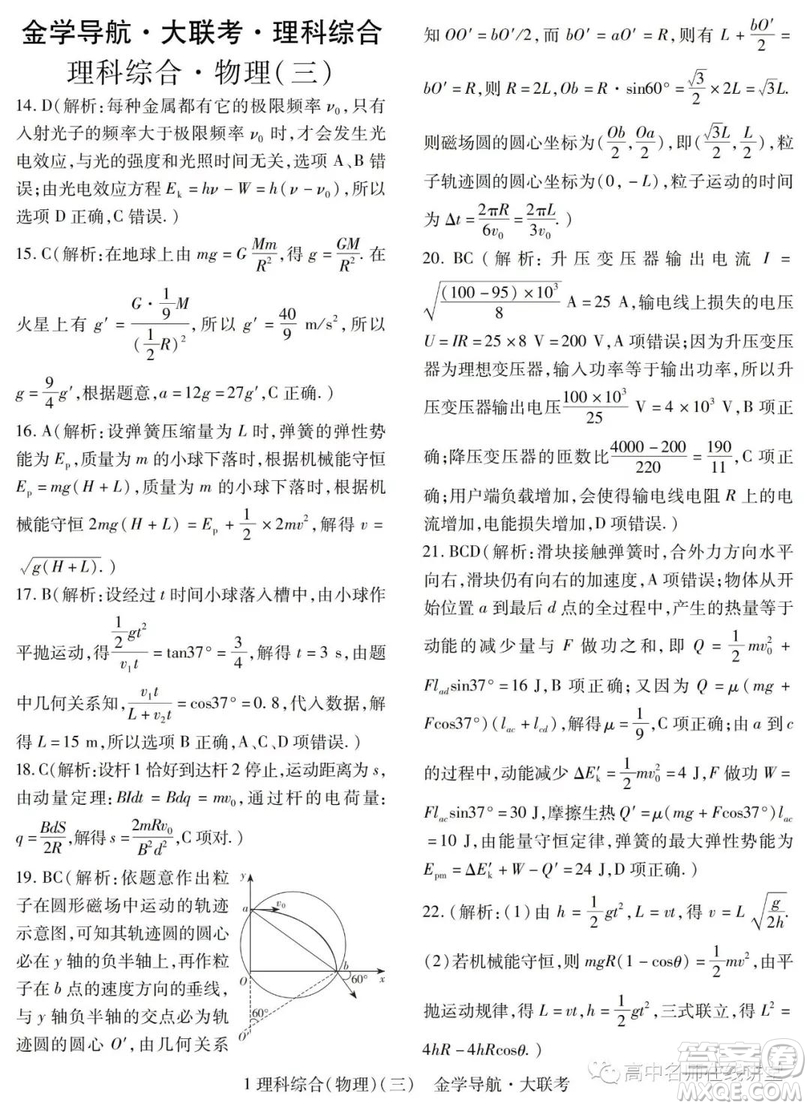 金学导航·大联考·理科综合
理科综合·物理(三)
14. D(解析:每种金属都有它的极限频率 ν₀,只有
入射光子的频率大于极限频率 ν₀ 时,才会发生光
电效应,与光的强度和光照时间无关,选项 A、B 错
误;由光电效应方程 Eₖ = hν − W = h(ν − ν₀),所以
选项 D 正确,C 错误.)
15. C(解析:在地球上由 mg = G Mm/R²,得 g = GM/R². 在
火星上有 g′ = (G·1/9 M)/(1/2 R)²,所以 g′ = 40/9 m/s²,所以
g = 9/4 g′,根据题意,a = 12g = 27g′,C 正确.)
16. A(解析:设弹簧压缩量为 L 时,弹簧的弹性势
能为 Eₚ,质量为 m 的小球下落时,根据机械能守恒
Eₚ = mg(H + L),质量为 2m 的小球下落时,根据机
械能守恒 2mg(H + L) = Eₚ + 1/2 × 2mv²,解得 v =
√(g(H + L)).)
17. B(解析:设经过 t 时间小球落入槽中,由小球作
平抛运动,得 (1/2 gt²)/(v₁t) = tan37° = 3/4,解得 t = 3 s,由题
中几何关系知,v₁t/(L + v₂t) = cos37° = 0.8,代入数据,解
得 L = 15 m,所以选项 B 正确,A、C、D 项错误.)
18. C(解析:设杆 1 恰好到达杆 2 停止,运动距离为 s,
由动量定理:BIdt = Bdq = mv₀,通过杆的电荷量:
q = BdS/2R,解得 s = 2mRv₀/B²d²,C 项对.)
19. BC(解析:依题意作出粒
子在圆形磁场中运动的轨迹
示意图,可知其轨迹圆的圆心
必在 y 轴的负半轴上,再作粒
子在 b 点的速度方向的垂线,
与 y 轴负半轴的交点必为轨
迹圆的圆心 O′,由几何关系
y
a
v₀
b
O
60°
x
60°
O′
知 OO′ = bO′/2,而 bO′ = aO′ = R,则有 L + bO′/2 =
bO′ = R,则 R = 2L,Ob = R·sin60° = √3/2 × 2L = √3L.
则磁场圆的圆心坐标为(Ob/2, Oa/2),即(√3L/2, L/2),粒
子轨迹圆的圆心坐标为(0, −L),粒子运动的时间
为 Δt = 2πR/6v₀ = 2πL/3v₀.)
20. BC (解析: 升压变压器输出电流 I =
√((100 − 95) × 10³/8) A = 25 A,输电线上损失的电压
U = IR = 25 × 8 V = 200 V,A 项错误;因为升压变压
器为理想变压器,输入功率等于输出功率,所以升
压变压器输出电压 100 × 10³/25 V = 4 × 10³ V,B 项正
确;降压变压器的匝数比 (4000 − 200)/220 = 190/11,C 项正
确;用户端负载增加,会使得输电线电阻 R 上的电
流增加,电能损失增加,D 项错误.)
21. BCD(解析:滑块接触弹簧时,合外力方向水平
向右,滑块仍有向右的加速度,A 项错误;物体从开
始位置 a 到最后 d 点的全过程中,产生的热量等于
动能的减少量与 F 做功之和,即 Q = 1/2 mv₀² +
Fl_ad sin37° = 16 J,B 项正确;又因为 Q = μ(mg +
Fcos37°)(l_ac + l_cd),解得 μ = 1/9,C 项正确;由 a 到 c
的过程中,动能减少 ΔE′ₖ = 1/2 mv₀² = 4 J,F 做功 W =
Fl_ac sin37° = 30 J,摩擦生热 Q′ = μ(mg + Fcos37°)l_ac
= 10 J,由能量守恒定律,弹簧的最大弹性势能为
Eₚₘ = ΔE′ₖ + W − Q′ = 24 J,D 项正确.)
22. (解析:(1)由 h = 1/2 gt²,L = vt,得 v = L√(g/2h).
(2)若机械能守恒,则 mgR(1 − cosθ) = 1/2 mv²,由平
抛运动规律,得 L = vt,h = 1/2 gt²,三式联立,得 L² =
4hR − 4hRcosθ.)
1 理科综合(物理)(三) 金学导航·大联考